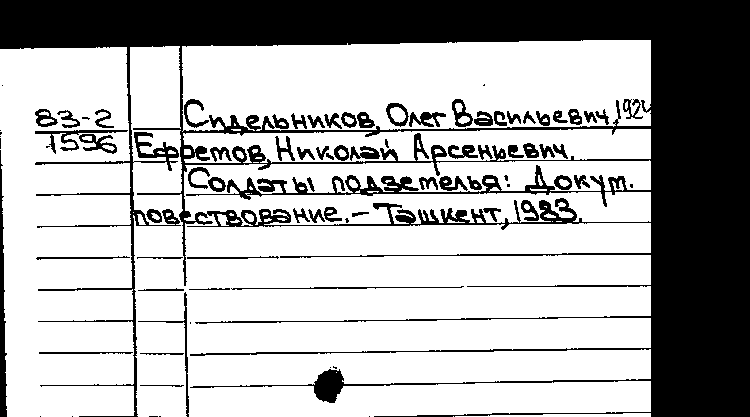 83-2 Сидельников, Олег Васильевич, 1924
1596 Ефремов, Николай Арсеньевич.
Солдаты подземелья: Докум.
повествование. - Ташкент, 1983.